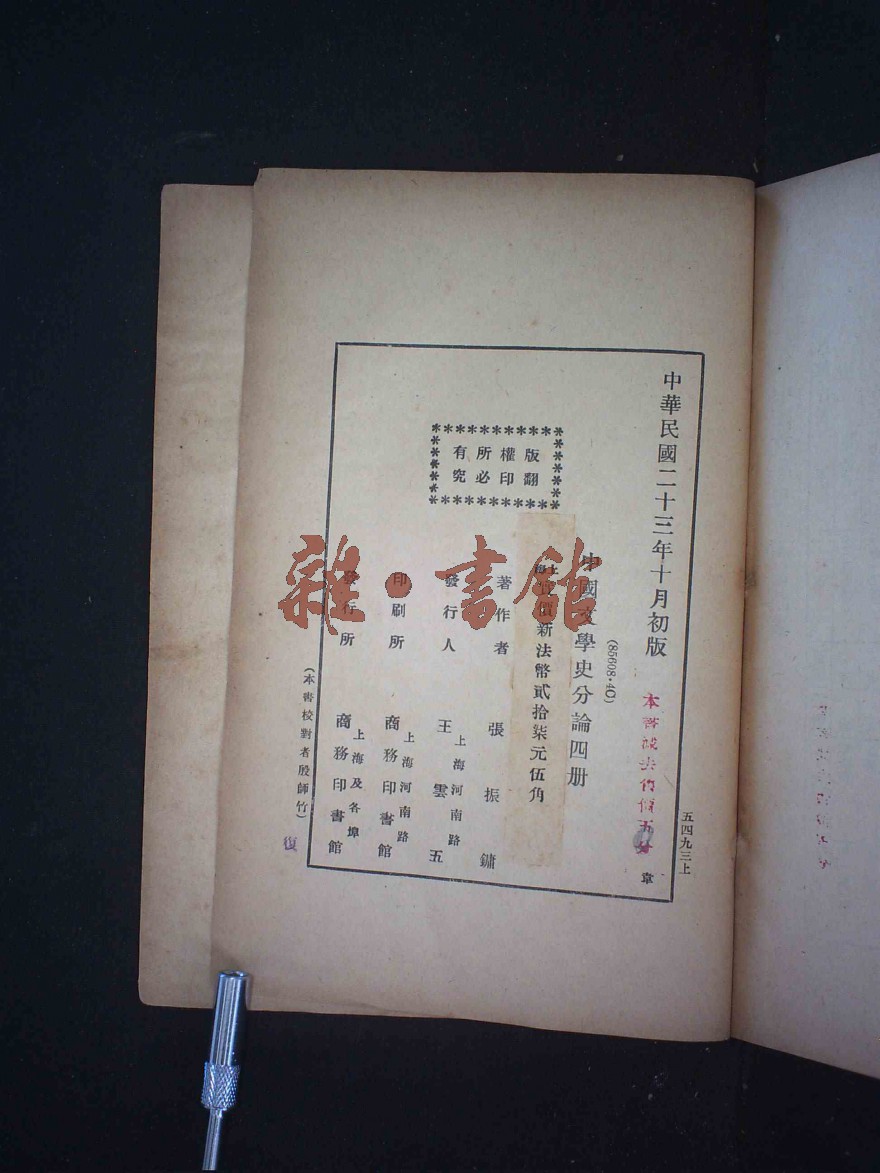 中華民國二十三年十月初版
五四九三上
本書
韋
(85608·4C)
中國文學史分論四册
上海實價新法幣貳拾柒元伍角
版權所有
翻印必究
著作者 張振鏞
發行人 王雲五
上海河南路
印刷所 商務印書館
上海河南路
發行所 商務印書館
上海及各埠
(本書校對者殷師竹)
復
雜·書館